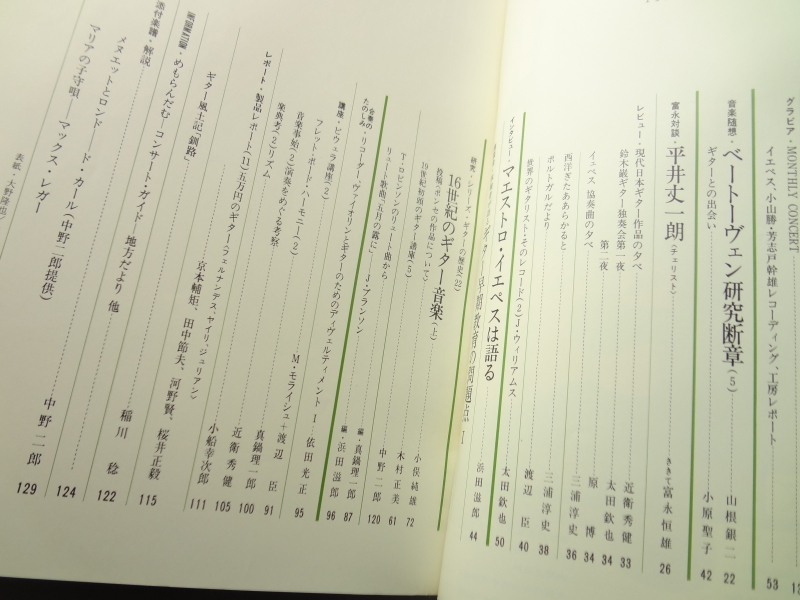 グラビア・MONTHLY CONCERT
イエペス、小山勝・芳志戸幹雄レコーディング、工房レポート 53
音楽随想・ベートーヴェン研究断章(5) 山根銀二 22
ギターとの出会い 小原聖子 42
富永対談・平井丈一朗(チェリスト) ききて富永恒雄 26
レビュー・現代日本ギター作品の夕べ 近衛秀健 33
鈴木巌ギター独奏会第一夜 太田欽也 34
第二夜 原博 34
イエペス協奏曲の夕べ 三浦淳史 36
西洋ぎたああらかると 三浦淳史 38
ポルトガルだより 渡辺臣 40
世界のギタリスト・そのレコード(2)J・ウィリアムス 太田欽也 50
インタビュー・マエストロ・イエペスは語る
早期教育の問題点 I 浜田滋郎 44
研究・シリーズ・ギターの歴史(22)
16世紀のギター音楽(上) 小俣純雄 72
投稿「ポンセの作品について」
19世紀初頭のギター講座(5) 木村正美 61
T・ロビンソンのリュート曲から 中野二郎 120
リュート歌曲「五月の露に」 J・ブランソン
合奏のたのしみ・リコーダー、ヴァイオリンとギターのためのディヴェルティメント I 編・真鍋理一郎 87
講座・ビウェラ講座(2) 編・浜田滋郎 96
フレット・ボード・ハーモニー(2) 依田光正 95
音楽事始(2)演奏をめぐる考察 M・モライシュ+渡辺臣 91
楽典考(2)リズム 真鍋理一郎 100
レポート・製品レポート(11)五万円のギター(フェルナンデス、ヤイリ、ジュリアン) 近衛秀健 105
京本輔矩、田中節夫、河野賢、桜井正毅
ギター風土記「釧路」 小船幸次郎 111
INFORMATION・めもらんだむ、コンサート・ガイド 115
地方だより 他 122
添付楽譜・解説 稲川稔
メヌエットとロンド ド・カール(中野二郎提供) 124
マリアの子守唄 マックス・レガー 中野二郎 129
表紙・大野隆也